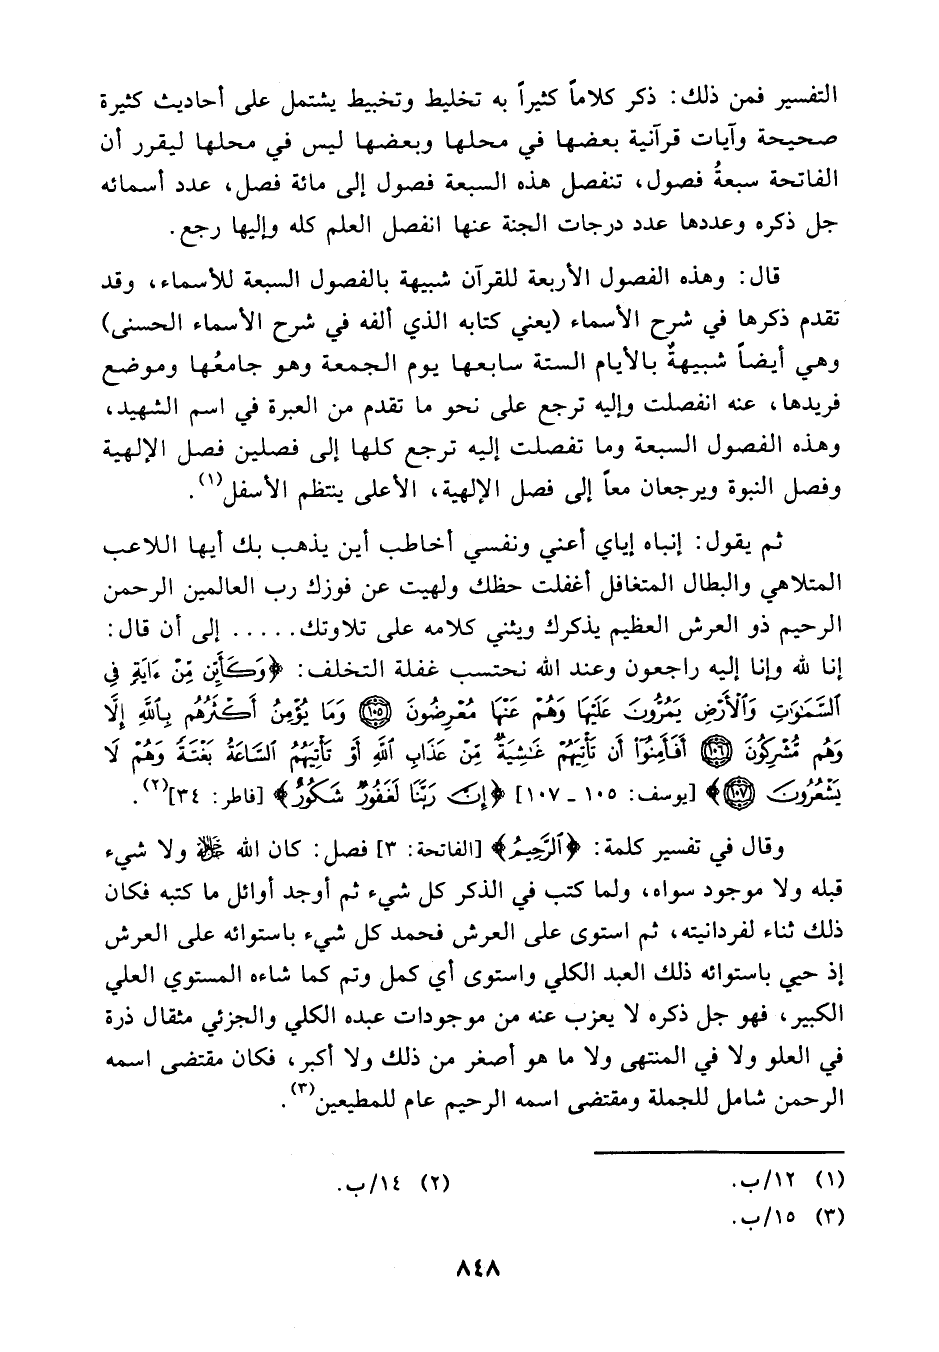 التفسير فمن ذلك: ذكر كلاماً كثيراً به تخليط وتخبيط يشتمل على أحاديث كثيرة
صحيحة وآيات قرآنية بعضها في محلها وبعضها ليس في محلها ليقرر أن
الفاتحة سبعةُ فصول، تنفصل هذه السبعة فصول إلى مائة فصل، عدد أسمائه
جل ذكره وعددها عدد درجات الجنة عنها انفصل العلم كله وإليها رجع.
قال: وهذه الفصول الأربعة للقرآن شبيهة بالفصول السبعة للأسماء، وقد
تقدم ذكرها في شرح الأسماء (يعني كتابه الذي ألفه في شرح الأسماء الحسنى)
وهي أيضاً شبيهةٌ بالأيام الستة سابعها يوم الجمعة وهو جامعُها وموضع
فريدها، عنه انفصلت وإليه ترجع على نحو ما تقدم من العبرة في اسم الشهيد،
وهذه الفصول السبعة وما تفصلت إليه ترجع كلها إلى فصلين فصل الإلهية
وفصل النبوة ويرجعان معاً إلى فصل الإلهية، الأعلى ينتظم الأسفل(١).
ثم يقول: إنباه إياي أعني ونفسي أخاطب أين يذهب بك أيها اللاعب
المتلاهي والبطال المتغافل أغفلت حظك ولهيت عن فوزك رب العالمين الرحمن
الرحيم ذو العرش العظيم يذكرك ويثني كلامه على تلاوتك..... إلى أن قال:
إنا لله وإنا إليه راجعون وعند الله نحتسب غفلة التخلف: ﴿وَكَأَيِّن مِّنْ ءَايَةٍ فِي
ٱلسَّمَٰوَٰتِ وَٱلْأَرْضِ يَمُرُّونَ عَلَيْهَا وَهُمْ عَنْهَا مُعْرِضُونَ ١٠٥ وَمَا يُؤْمِنُ أَكْثَرُهُم بِٱللَّهِ إِلَّا
وَهُم مُّشْرِكُونَ ١٠٦ أَفَأَمِنُوٓا۟ أَن تَأْتِيَهُمْ غَٰشِيَةٌ مِّنْ عَذَابِ ٱللَّهِ أَوْ تَأْتِيَهُمُ ٱلسَّاعَةُ بَغْتَةً وَهُمْ لَا
يَشْعُرُونَ ١٠٧﴾ [يوسف: ١٠٥ - ١٠٧] ﴿إِنَّ رَبَّنَا لَغَفُورٌ شَكُورٌ﴾ [فاطر: ٣٤](٢).
وقال في تفسير كلمة: ﴿ٱلرَّحِيمِ﴾ [الفاتحة: ٣] فصل: كان الله ﷻ ولا شيء
قبله ولا موجود سواه، ولما كتب في الذكر كل شيء ثم أوجد أوائل ما كتبه فكان
ذلك ثناء لفردانيته، ثم استوى على العرش فحمد كل شيء باستوائه على العرش
إذ حيي باستوائه ذلك العبد الكلي واستوى أي كمل وتم كما شاءه المستوي العلي
الكبير، فهو جل ذكره لا يعزب عنه من موجودات عبده الكلي والجزئي مثقال ذرة
في العلو ولا في المنتهى ولا ما هو أصغر من ذلك ولا أكبر، فكان مقتضى اسمه
الرحمن شامل للجملة ومقتضى اسمه الرحيم عام للمطيعين(٣).
(١) ١٢/ب. (٢) ١٤/ب.
(٣) ١٥/ب.
٨٤٨